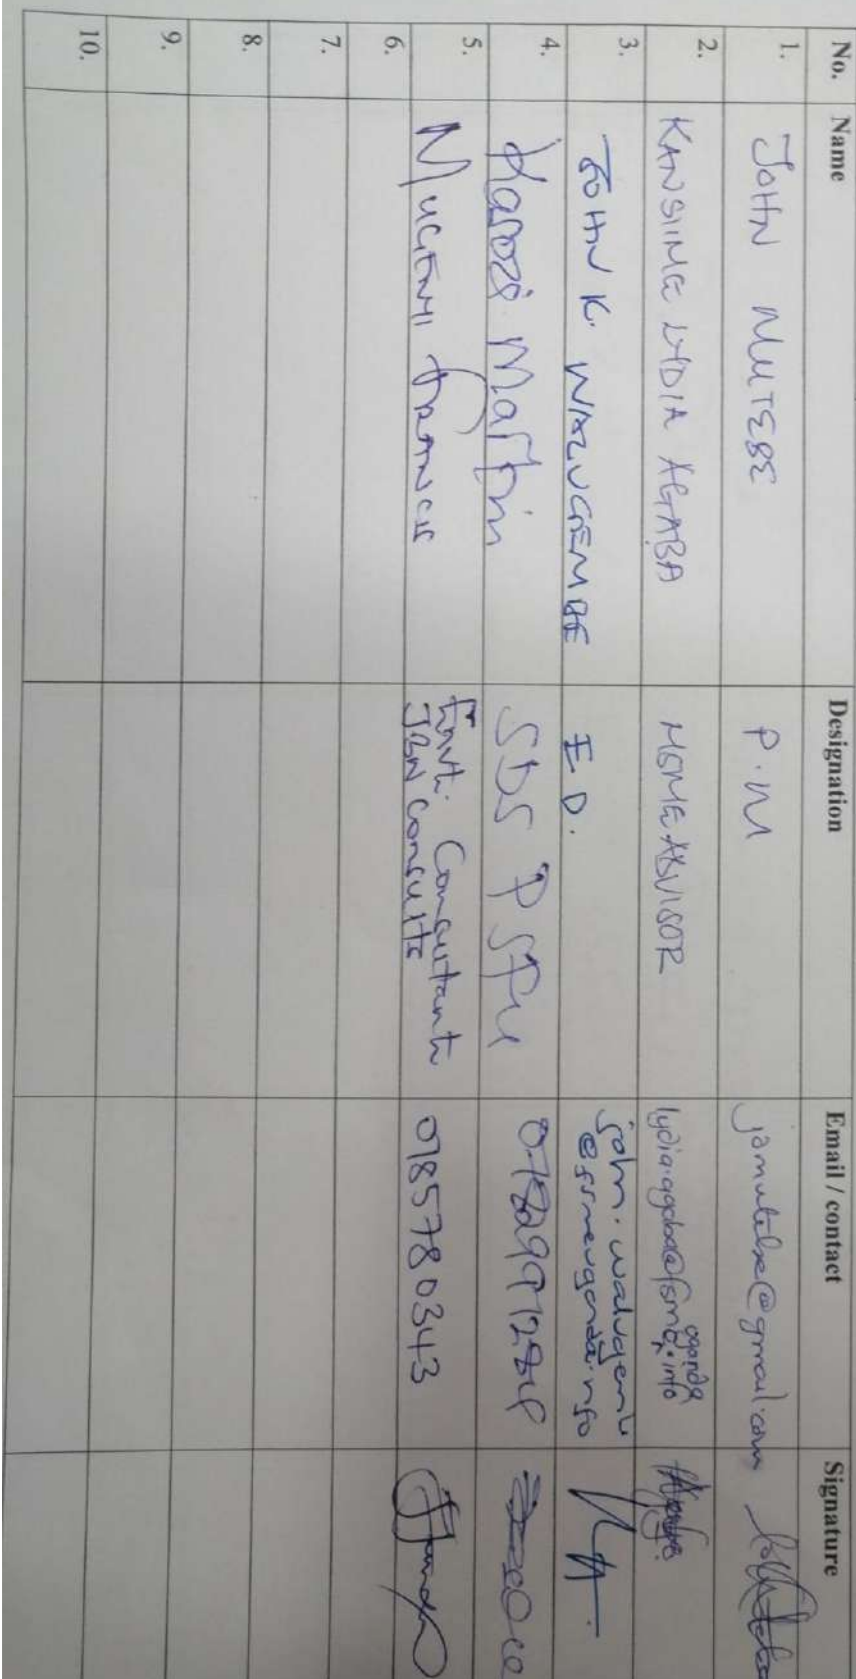 No. Name Designation Email / contact Signature
1. JOHN MUTEBE P.M jamutebe@gmail.com
2. KANSIIME LYDIA AGABA MSME ADVISOR
uganda
lydia.agaba@fsme.info
3. JOHN K. WALUGEMBE E.D.
john.walugembe
@fsmeuganda.info
4. Kasozi Martin SDS PSFU
5. MUGENYI FRANCIS Envt. Consultant 0785780343
JBN Consults
6.
7.
8.
9.
10.